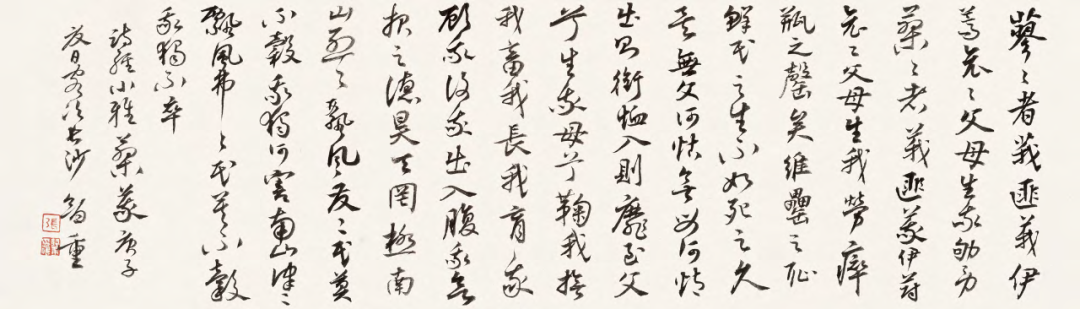 蓼〻者莪匪莪伊
蒿哀〻父母生我劬勞
蓼〻者莪匪莪伊蔚
哀〻父母生我勞瘁
瓶之罄矣維罍之恥
鮮民之生不如死之久
矣無父何怙無母何恃
出則銜恤入則靡至父
兮生我母兮鞠我撫
我畜我長我育我
顧我復我出入腹我欲
報之德昊天罔極南
山烈〻飄風發〻民莫
不穀我獨何害南山律〻
飄風弗〻民莫不穀
我獨不卒
詩經小雅蓼莪庚子
夏日長沙
張